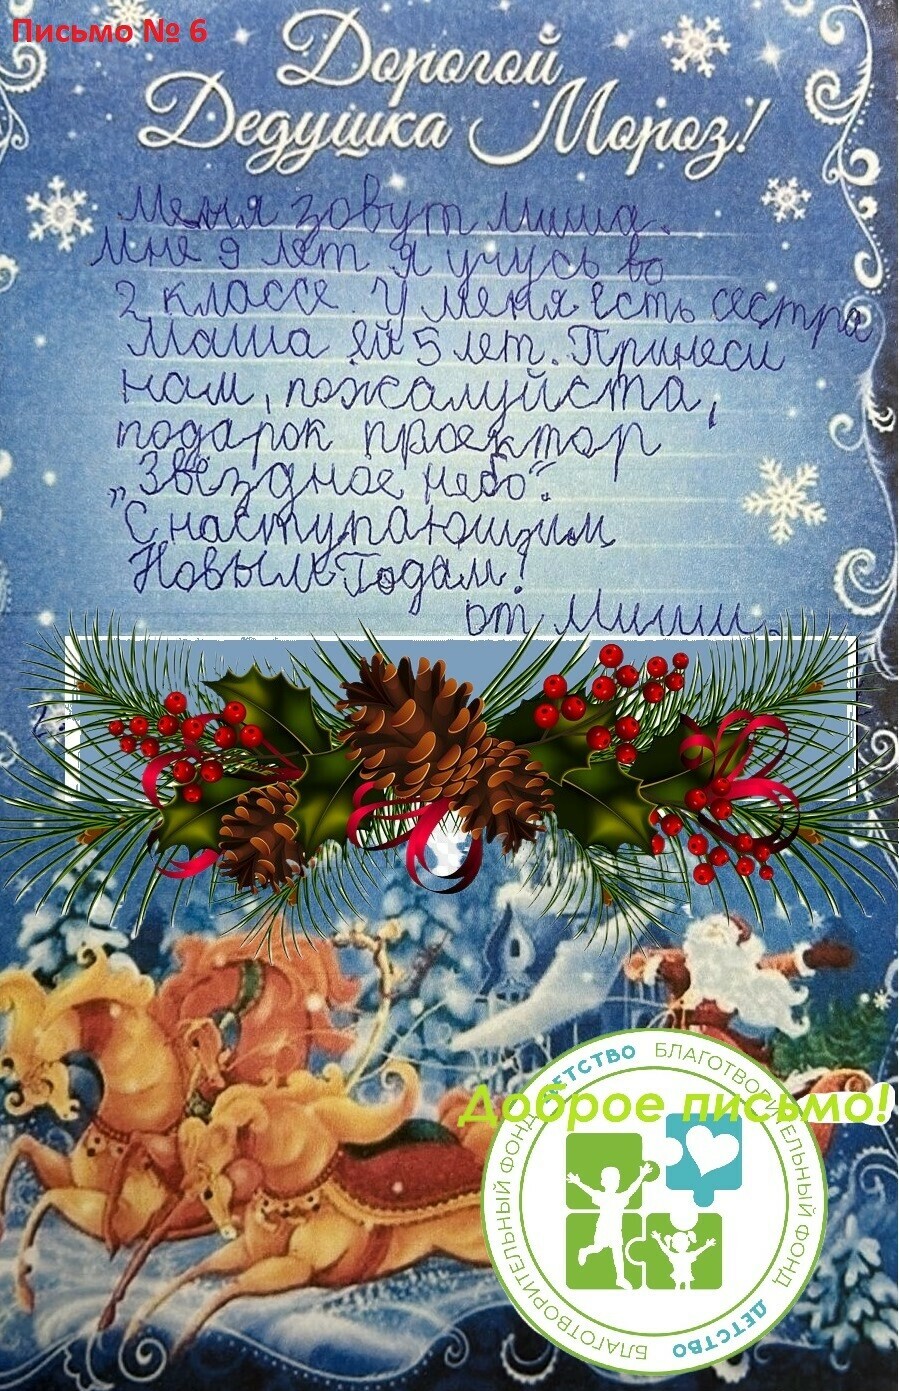 Письмо № 6
Дорогой
Дедушка Мороз!
Меня зовут Миша.
Мне 9 лет я учусь во
2 классе. У меня есть сестра
Маша ей 5 лет. Принеси
нам, пожалуйста,
подарок проектор
„Звёздное небо“.
С наступающим
Новым Годам!
от Миши.
Доброе письмо!
БЛАГОТВОРИТЕЛЬНЫЙ ФОНД ДЕТСТВО
БЛАГОТВОРИТЕЛЬНЫЙ ФОНД ДЕТСТВО